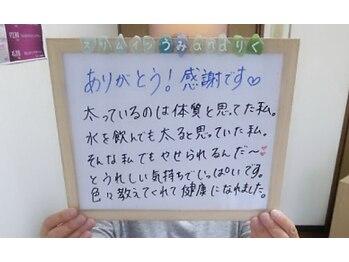 スリムインうみandりく
ありがとう！感謝です♡
太っているのは体質と思ってた私。
水を飲んでも太ると思っていた私。
そんな私でもやせられるんだ〜♥
とうれしい気持ちでいっぱいです。
色々教えてくれて健康になれました。